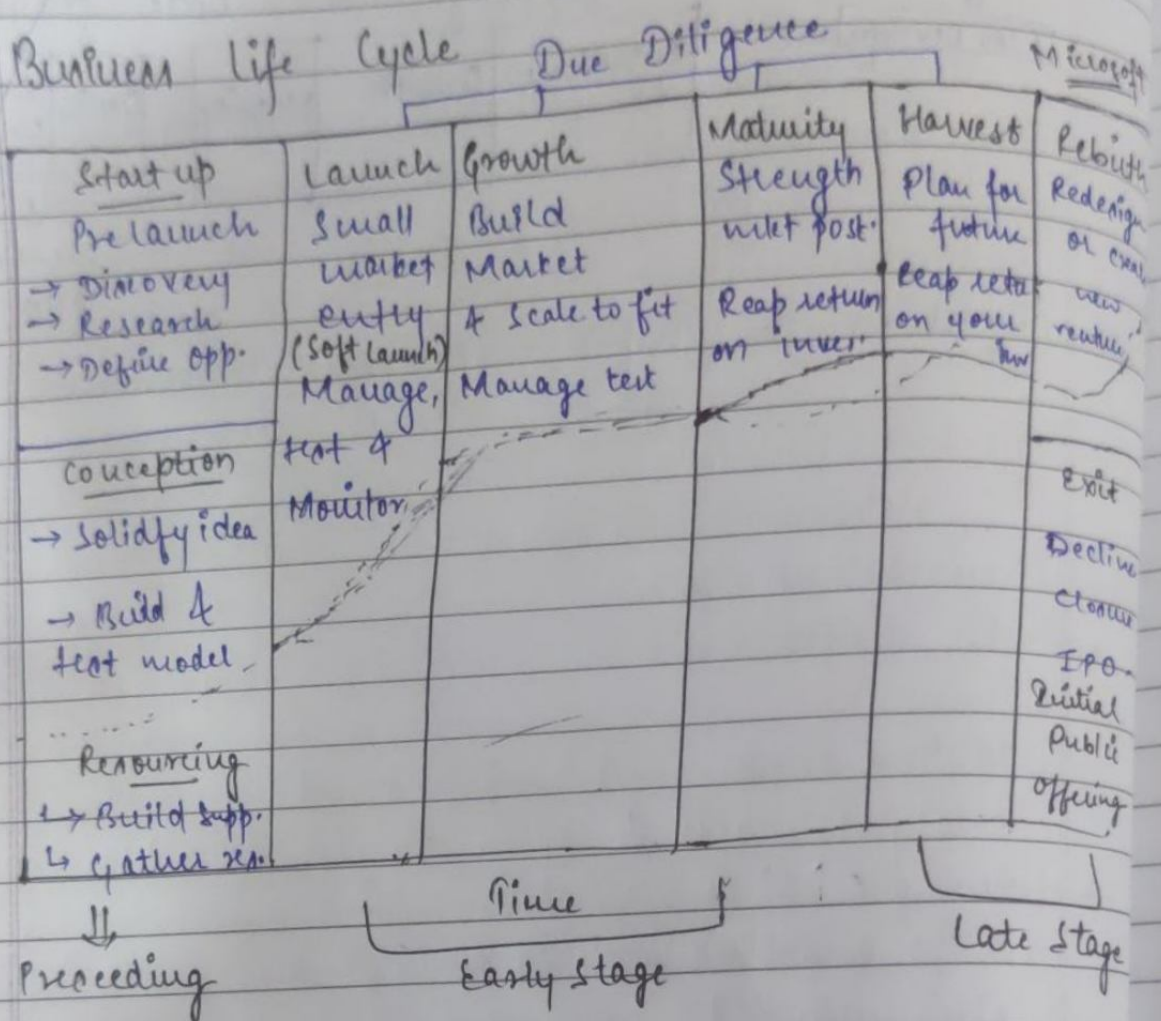 Business Life Cycle
Due Diligence
Microsoft
Start up
Prelaunch
→ Discovery
→ Research
→ Define Opp.
Conception
→ Solidfy idea
→ Build &
test model
Resourcing
↳ Build Supp.
↳ Gather res.
Launch
Small
market
entry
(Soft Launch)
Manage,
test &
Monitor
Growth
Build
Market
& Scale to fit
Manage test
Maturity
Strength
mkt post.
Reap return
on inver.
Harvest
Plan for
future
Reap retu
on your
inv
Rebirth
Redesign
or creat
new
venture
Exit
Decline
Closure
IPO.
Initial
Public
Offering
Time
⇓
Preceeding
Early Stage
Late Stage